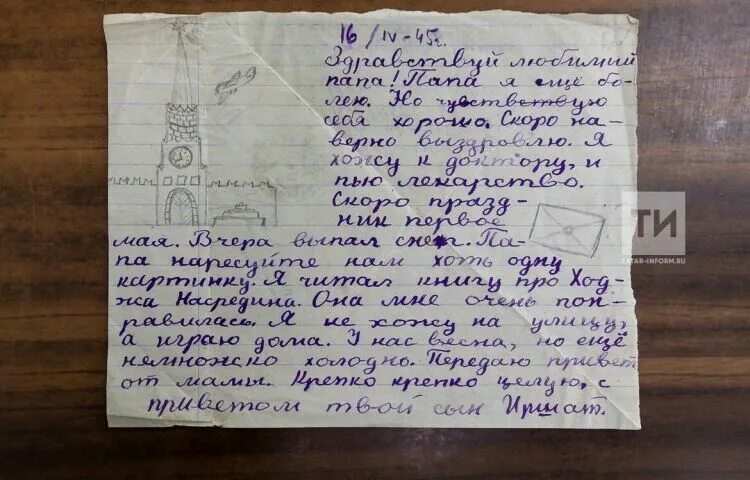 16/IV-45г.
Здравствуй любимий
папа! Папа я ещё бо-
лею. Но чувствую
себя хорошо. Скоро на-
верно выздровлю. Я
хожу к доктору, и
пью лекарство.
Скоро празд-
ник первое
мая. Вчера выпал снег. Па-
па наресуйте нам хоть одну
картинку. Я читал книгу про Ход-
жа Насредина. Она мне очень пон-
равилась. Я не хожу на улицу,
а играю дома. У нас весна, но ещё
немножко холодно. Передаю привет
от мамы. Крепко крепко целую, с
приветом твой сын Иршат.
ТИ
TATAR-INFORM.RU